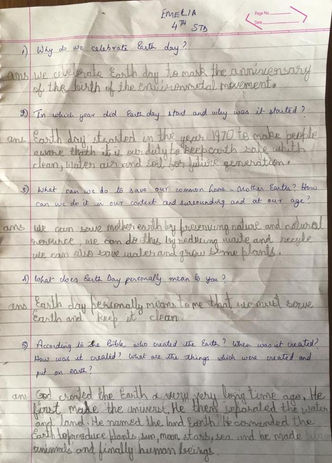 EMELIA
4TH STD
Page No.
Date
1) Why do we celebrate Earth day?
ans we celebrate Earth day to mark the anniversary
of the birth of the environmetal movement.
2) In which year did Earth day start and why was it started?
ans Earth day started in the year 1970 to make people
aware that it is our duty to keep earth safe with
clean, water air and soil for future generation.
3) What can we do to save our common home - Mother Earth? How
can we do it in our context and surrounding and at our age?
ans we can save mother earth by preserving nature and natural
resource, we can do this by reducing waste and recycle
we can also save water and grow some plants.
4) What does Earth Day personally mean to you?
ans Earth day personally means to me that we must save
Earth and keep it clean.
5) According to the Bible who created the Earth? When was it created?
How was it created? What are the things which were created and
put on earth?
an God created the Earth a very very long time ago, He
first made the universe. He then separated the water
and land. He named the land Earth. He commanded the
Earth to produce plants, sun, moon, stars, sea and he made
animals and finally human beings.